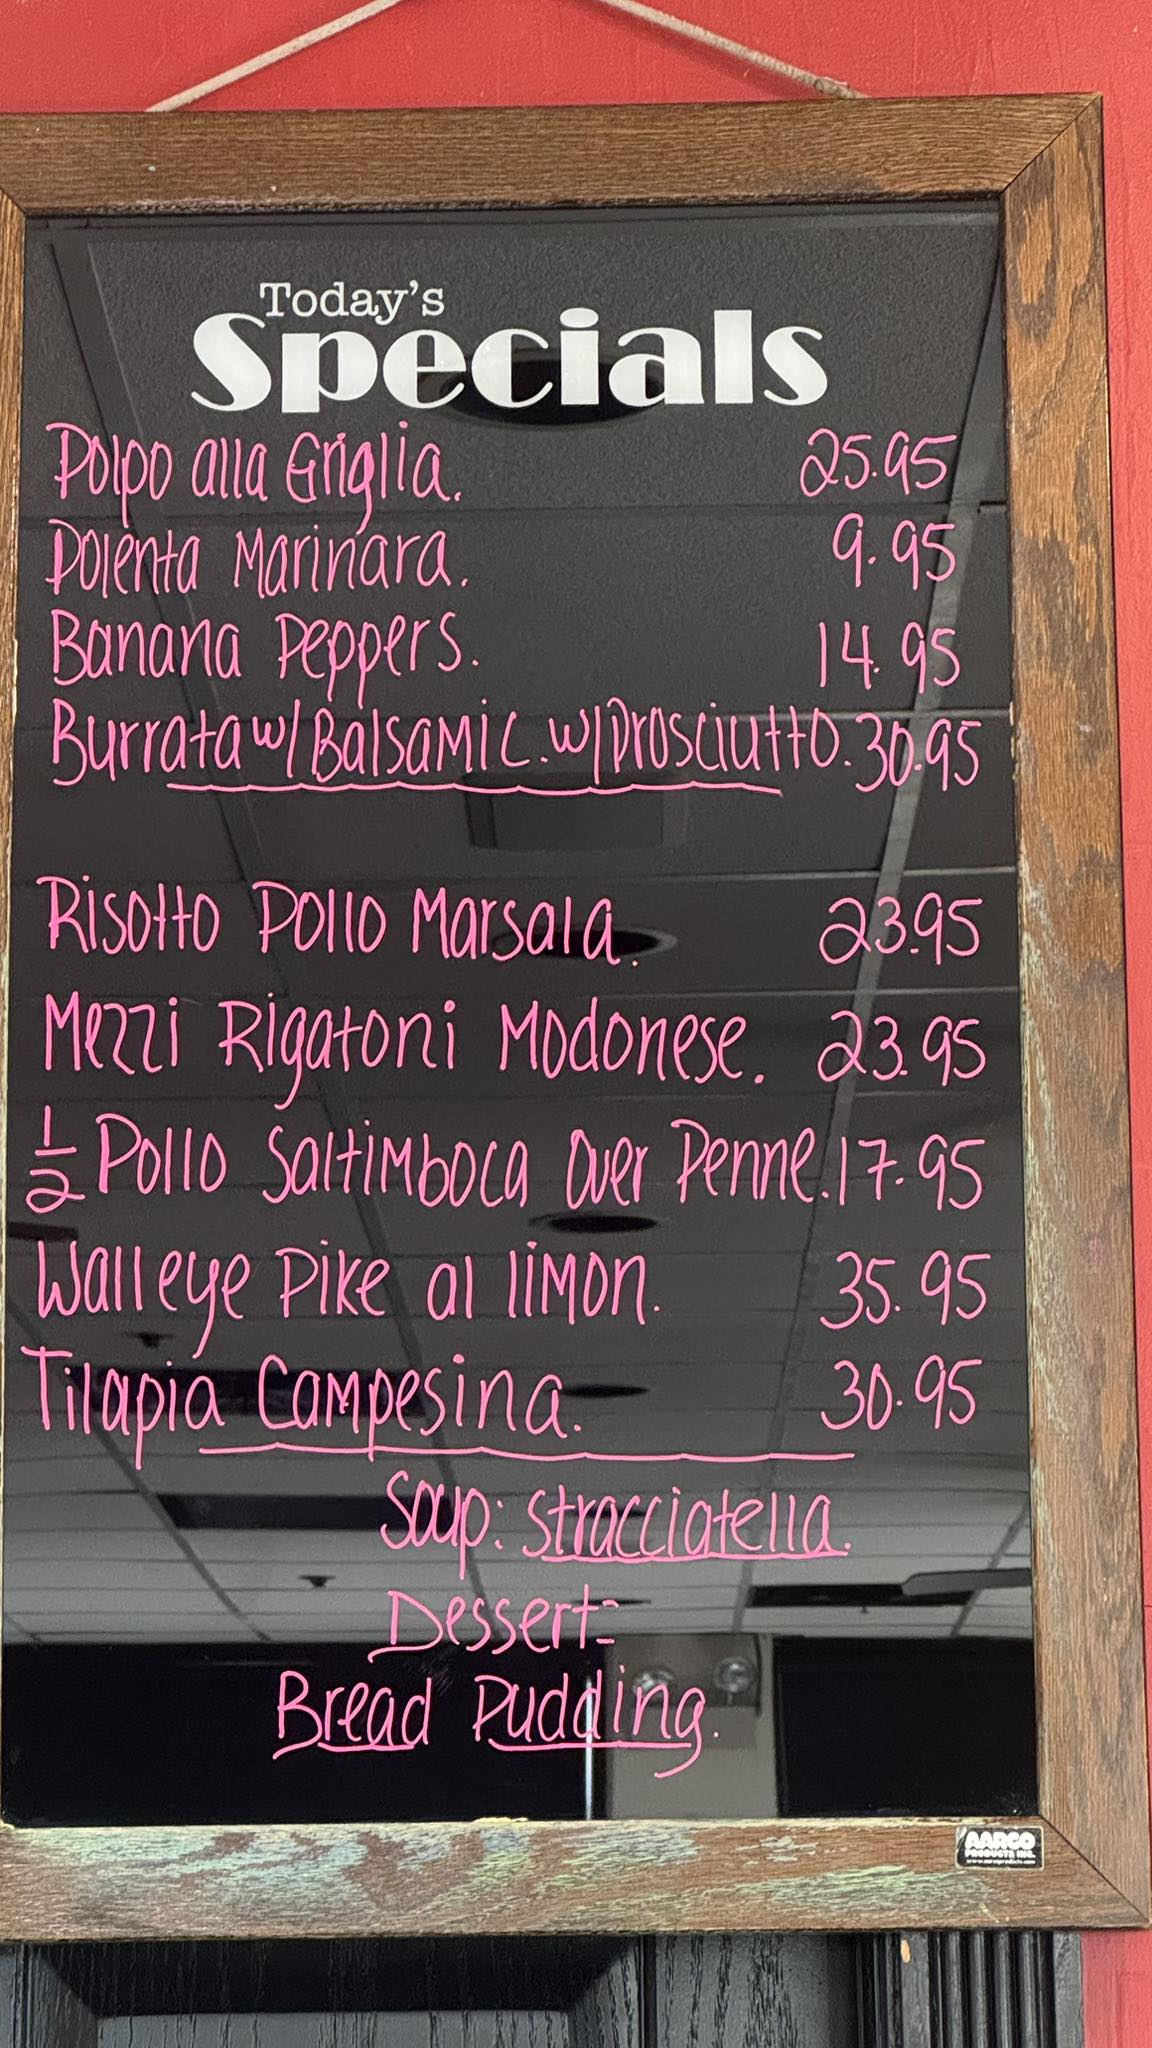 Today's
Specials
Polpo alla Griglia. 25.95
Polenta Marinara. 9.95
Banana Peppers. 14.95
Burrata w/ Balsamic. w/ Prosciutto. 30.95
Risotto Pollo Marsala. 23.95
Mezzi Rigatoni Modonese. 23.95
1/2 Pollo Saltimboca Over Penne. 17.95
Walleye Pike al limon. 35.95
Tilapia Campesina. 30.95
Soup: Stracciatella.
Dessert:
Bread Pudding.
AARCO
PRODUCTS INC.